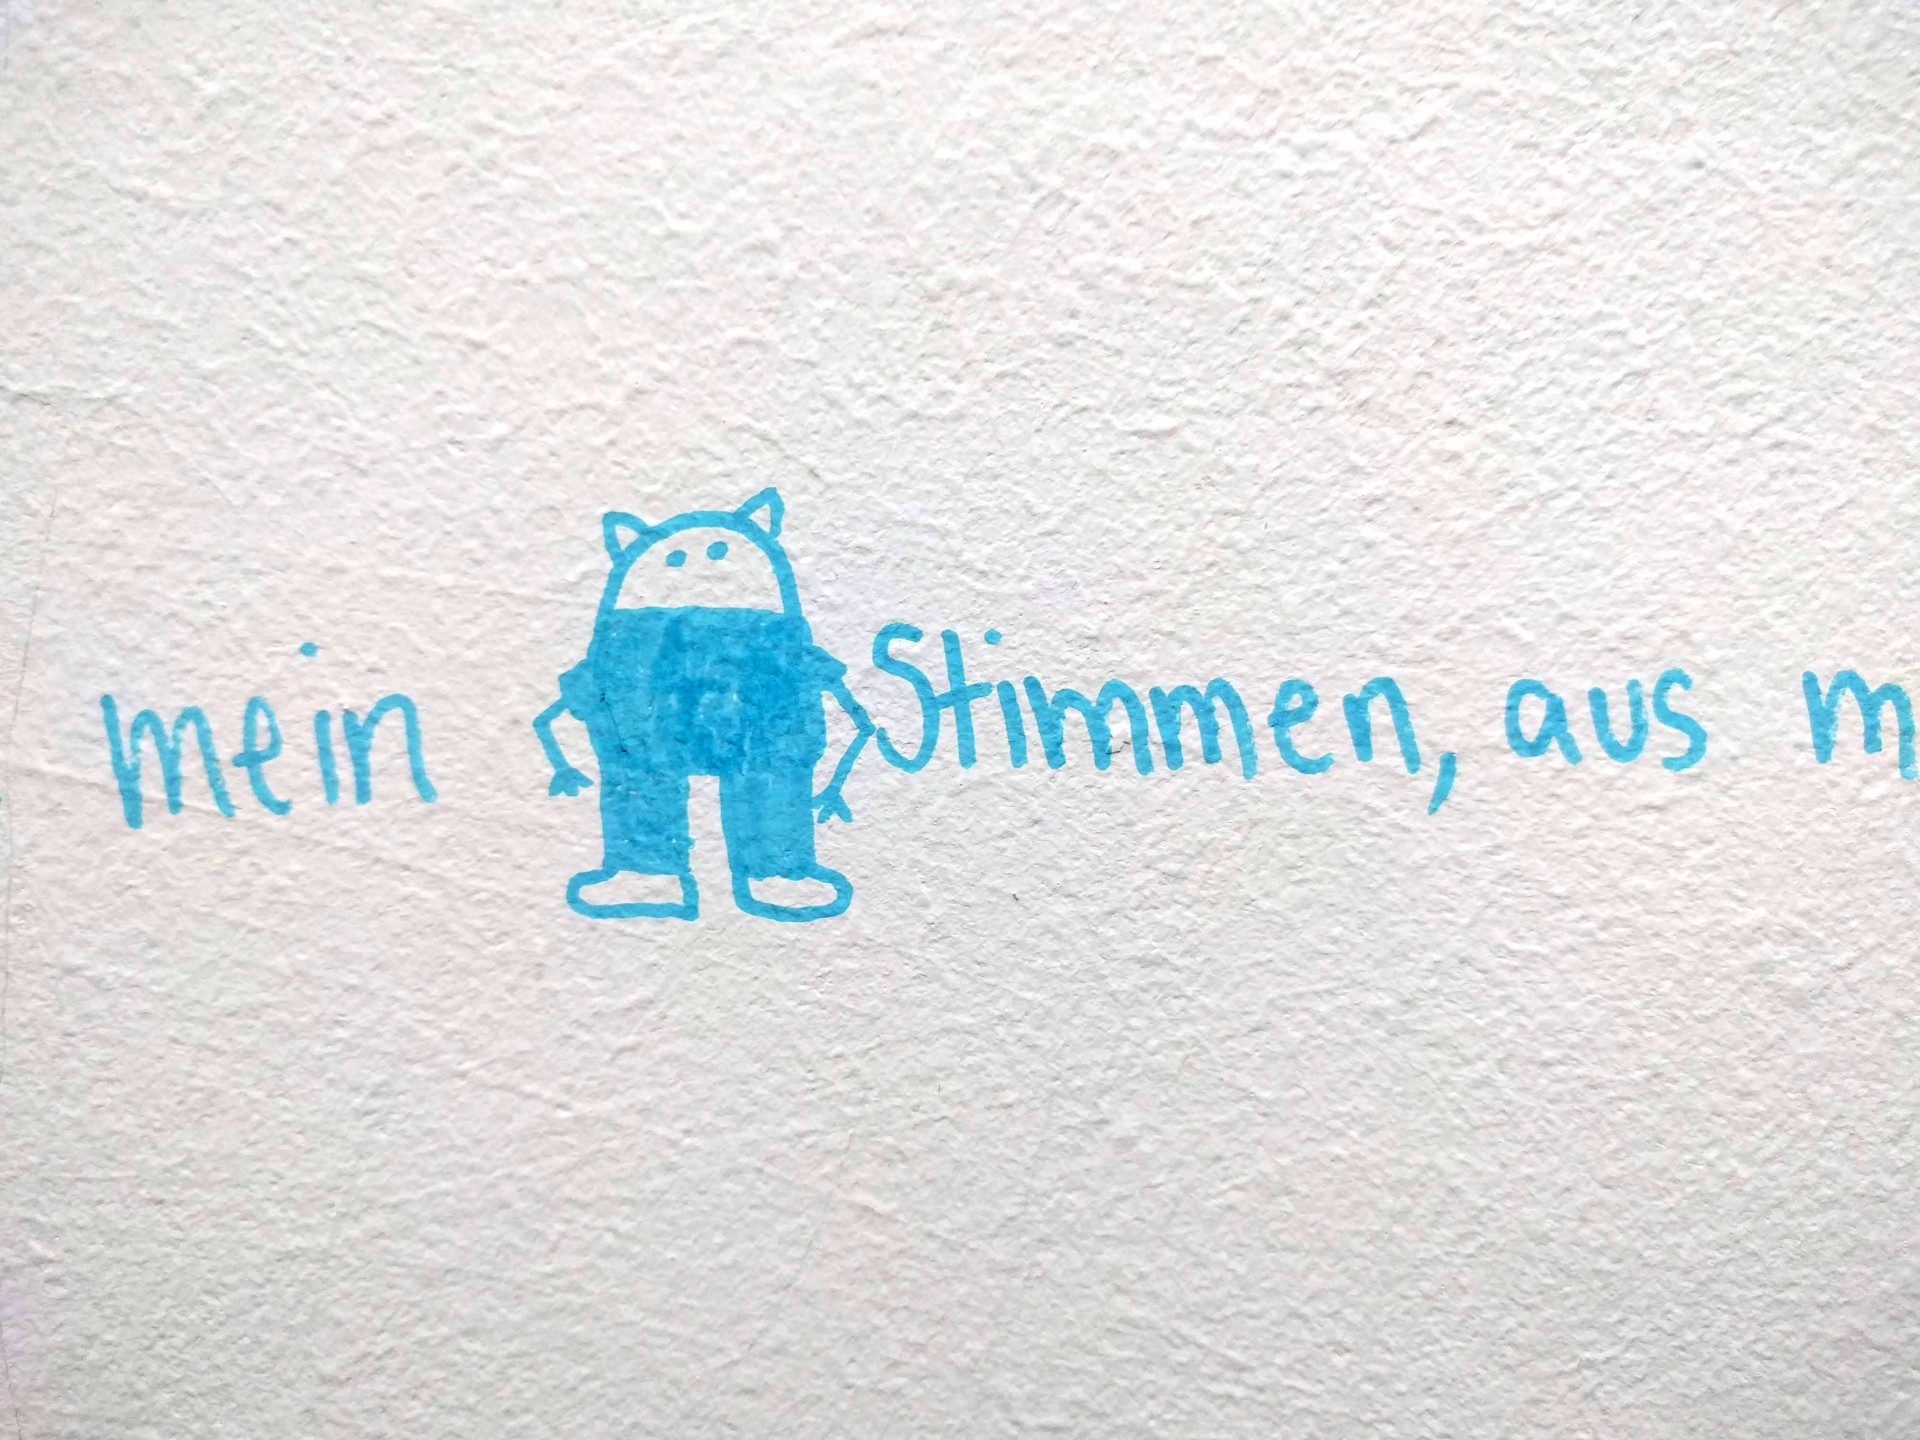 mein Stimmen, aus m